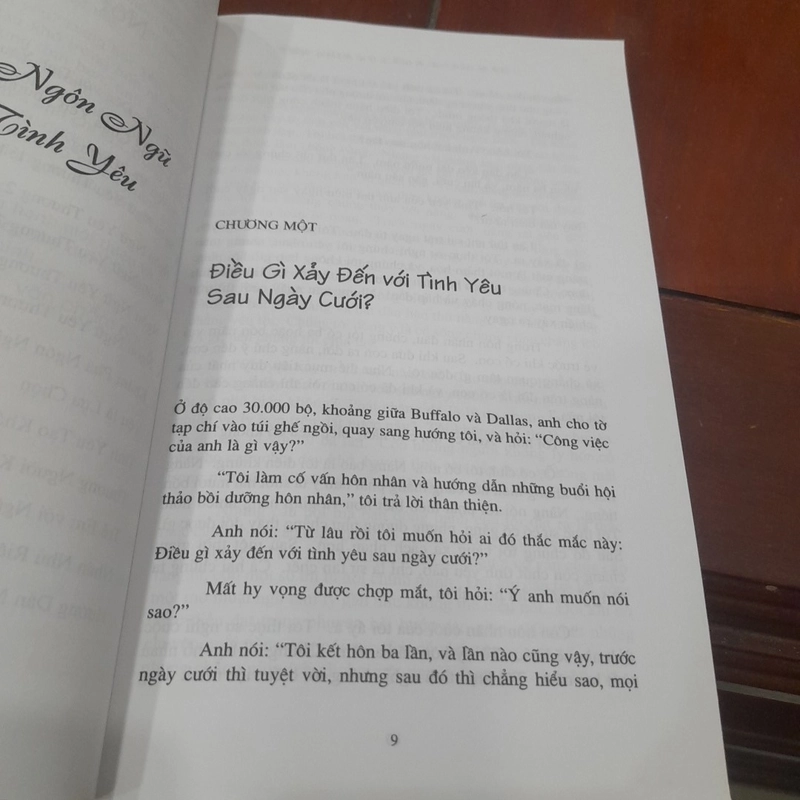 Ngôn Ngữ
Tình Yêu
CHƯƠNG MỘT
Điều Gì Xảy Đến với Tình Yêu
Sau Ngày Cưới?
Ở độ cao 30.000 bộ, khoảng giữa Buffalo và Dallas, anh cho tờ
tạp chí vào túi ghế ngồi, quay sang hướng tôi, và hỏi: “Công việc
của anh là gì vậy?”
“Tôi làm cố vấn hôn nhân và hướng dẫn những buổi hội
thảo bồi dưỡng hôn nhân,” tôi trả lời thân thiện.
Anh nói: “Từ lâu rồi tôi muốn hỏi ai đó thắc mắc này:
Điều gì xảy đến với tình yêu sau ngày cưới?”
Mất hy vọng được chợp mắt, tôi hỏi: “Ý anh muốn nói
sao?”
Anh nói: “Tôi kết hôn ba lần, và lần nào cũng vậy, trước
ngày cưới thì tuyệt vời, nhưng sau đó thì chẳng hiểu sao, mọi
9